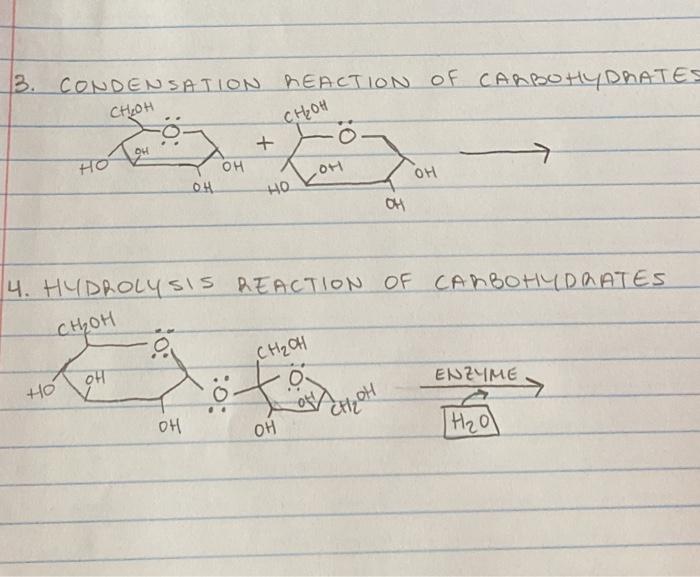 3. CONDENSATION REACTION OF CARBOHYDRATES
CH2OH CH2OH
O + O
HO OH OH HO OH OH
OH OH
4. HYDROLYSIS REACTION OF CARBOHYDRATES
CH2OH
O CH2OH
HO OH O O OH CH2OH ENZYME
OH OH H2O